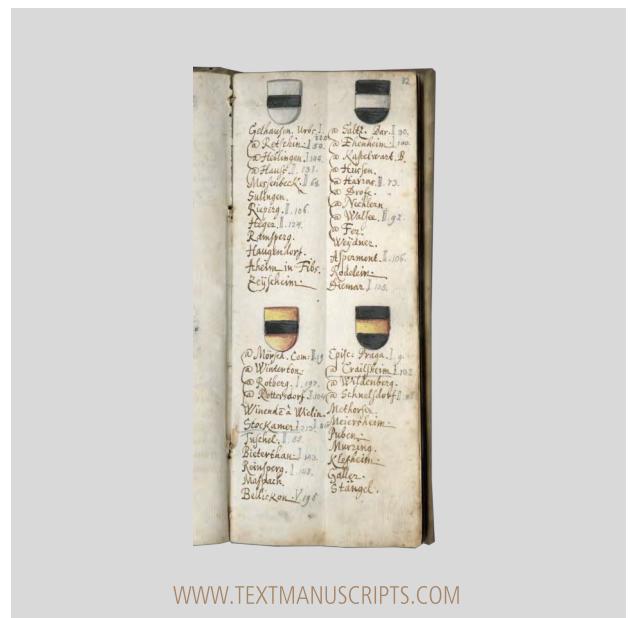 32
Gelhausen. Urbs. I.
a Retschin. I 50.
a Heblingen. I 144.
a Haust. II. 131.
Messenbeck. II 68.
Sulingen.
Rieperg. II. 106.
Heger. II. 124.
Ramsperg.
Haugendorf.
Aheim in Fibs.
Zeÿscheim.
a Saltz. Bar. I 30.
a Ehenheim. I 100.
a Kastelwart. B.
a Husen.
a Harras. II. 73.
a Brote.
a Nechtern
a Walsee. II. 92.
a Fox.
Weydner.
Aspermont. II. 106.
Rodelein.
Diemar I 105.
a Mörsch. Com. II. 19
a Winterton.
a Rotberg. I. 197.
a Rottersdorf. I. 104
Winende à Wielin.
Stockamer. I 213.
Tuschel. II. 55.
Bieterthau. I 143.
Reinsperg. I. 148.
Maspach.
Bellickon. V 195
Episc. Praga. I. 9.
a Crailsheim. I. 102
a Wildenberg.
a Schnelsdorf. II
Methorse.
Meiersheim.
Puben.
Murzing.
Klesheim.
Galler.
Stängel.
WWW.TEXTMANUSCRIPTS.COM